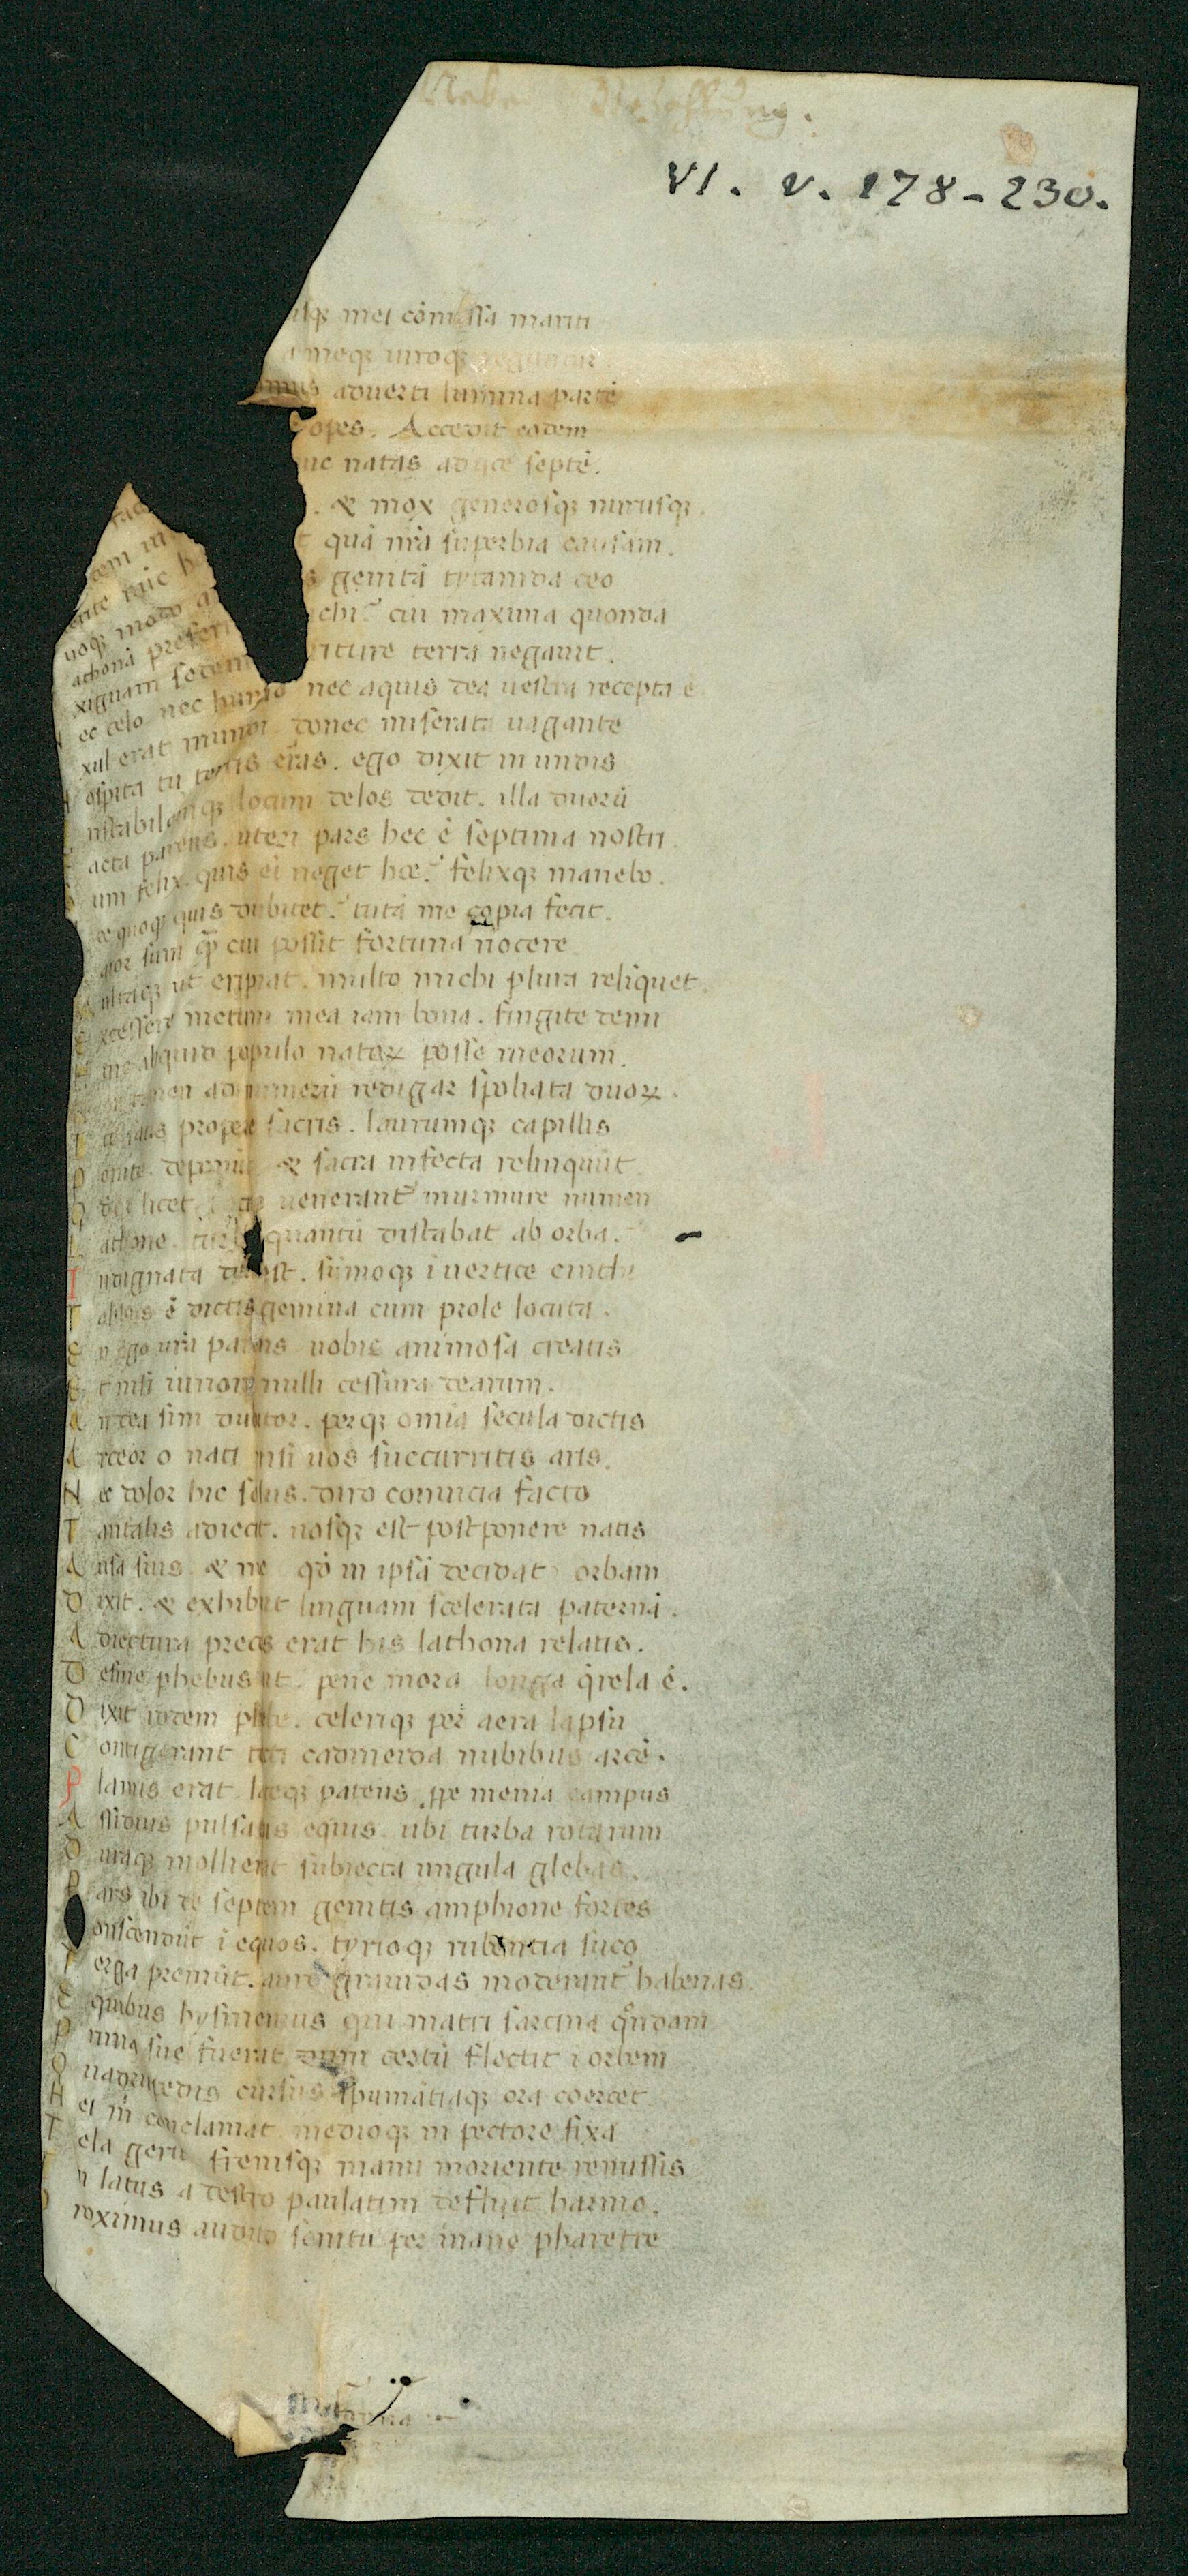 VI. v. 178-230.
usq; mei cōmissa mariti
a meq; uiroq; regunt̄
omus aduerti lumina partē
opes. Accedit eodem
uc natas adice septē.
. & mox generosq; nurusq;.
t quā nr̄a superbia causam.
cem in s genitā tytanida ceo
ente mic p chi? cui maxima quondā
uoq; modo a riture terra negauit.
athonā prefer
xiguam sedem
ec celo nec humo nec aquis dea uestra recepta ē
xul erat mundi donec miserata uagante
ospita tu terris erras. ego dixit in undis
nstabilemq; locum delos dedit. illa duorū
acta parens. uteri pars hec ē septima nostri.
um felix. quis ei neget hoc? felixq; manebo.
oc quoq; quis dubitet? tutā me copia fecit.
aior sum qp̄ cui possit fortuna nocere
ultaq; ut eripiat. multo michi plura reliquet.
E xcessere metum mea iam bona. fingite demi
H uic aliquid populo natoꝝ posse meorum.
on tamen ad numerū redigar spoliata duoꝝ.
propera sacris. laurumq; capillis
P onite. deponunt & sacra infecta relinquūt
Q d' licet uenerant̄ murmure numen
L athone. turba quantū distabat ab orba.
I ndignata dea est. sūmoq; i uertice cinthi
T alibus ē dictis gemina cum prole locuta.
E n ego ur̄a parens uobis animosa creatis
E t nisi iunoni nulli cessura dearum.
A n dea sim dubitor. perq; omīa secula dictis
A rceor o nati nisi uos succurritis aris.
N ec dolor hic solus. diro conuicia facto
T antalis adiecit. uosq; est postponere natis
A usa suis. & me qd̄ in ipsā decidat orbam
D ixit. & exhibuit linguam scelerata paternā.
A diectura preces erat his lathona relatis.
D esine phebus ait. pene mora longa q̄rela ē.
D ixit idem phebe. celeriq; per aera lapsu
C ontigerant tecti cadmeida nubibus arcē.
P lanus erat lateq; patens ꝓpe menia campus
A ssiduis pulsatus equis. ubi turba rotarum
D uraq; mollierat subiecta ungula glebas.
P ars ibi de septem genitis amphione fortes
onscendūt i equos. tyrioq; rubentia suco
T erga premūt. auro grauidas moderant̄ habenas.
E quibus hysmenus qui matri sarcina q̄ndam
P rima sue fuerat dum certū flectit i orbem
Q uadrupedis cursus spumātiaq; ora coercet
H ei m̄ conclamat medioq; in pectore fixa
T ela gerit frenisq; manu moriente remissis
n latus a dextro paulatim defluit harmo.
roximus audito sonitu per inane pharetre